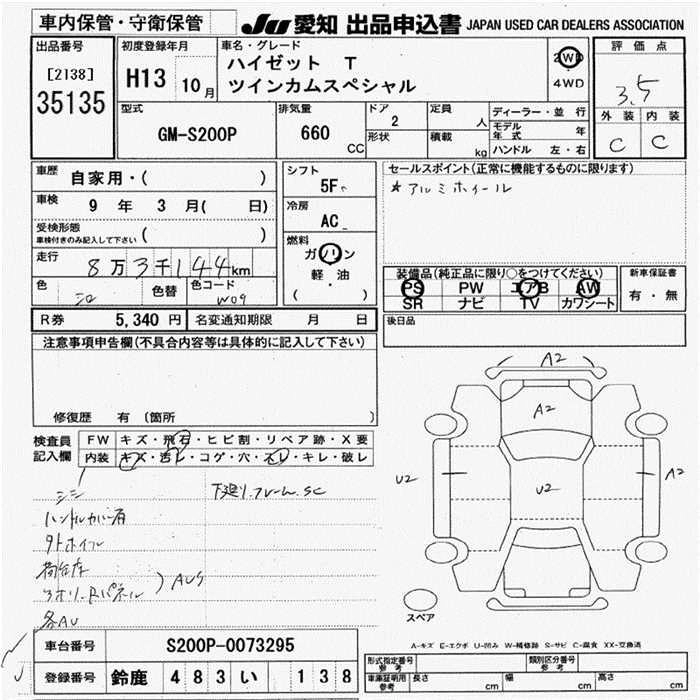 車内保管・守衛保管 JU 愛知 出品申込書 JAPAN USED CAR DEALERS ASSOCIATION
出品番号 初度登録年月 車名・グレード 評価点
[2138] H13 10月 ハイゼット T 2WD
35135 ツインカムスペシャル 4WD 3.5
型式 排気量 ドア 定員 ディーラー・並行 外装 内装
GM-S200P 660 CC 2 人 モデル年式 年 C C
形状 積載 kg ハンドル 左・右
車歴 自家用・( ) シフト セールスポイント(正常に機能するものに限ります)
5F ★アルミホイール
車検 9 年 3 月( 日) 冷房
受検形態 AC
車検付きのみ記入して下さい ( )
燃料
走行 8万3千144km ガソリン 装備品(純正品に限り○をつけてください) 新車保証書
色 シロ 色替 色コード W09 軽・油 PS PW エアB AW 有・無
( ) SR ナビ TV カワシート
R券 5,340 円 名変通知期限 月 日 後日品
注意事項申告欄(不具合内容等は具体的に記入して下さい)
修復歴 有 (箇所 )
検査員 FW キズ・飛石・ヒビ割・リペア跡・X要
記入欄 内装 キズ・汚レ・コゲ・穴・スレ・キレ・破レ
A2
A2
U2 U2 A2
シミ 下廻り.フレームSC
ハンドルカバー有
外ホイル
荷台床
AUS
各AU
スペア
A-キズ E-エクボ U-凹み W-補修跡 S-サビ C-腐食 XX-交換済
車台番号 S200P-0073295
登録番号 鈴鹿 483 い 138
形式指定番号 参考 類別区分番号 参考
車庫証明用 参考 長さ cm 幅 cm 高さ cm